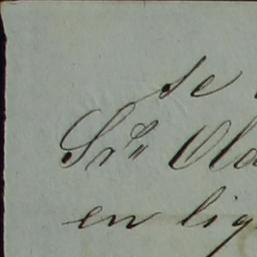 se
Sr̃ˢ Ola
en liq